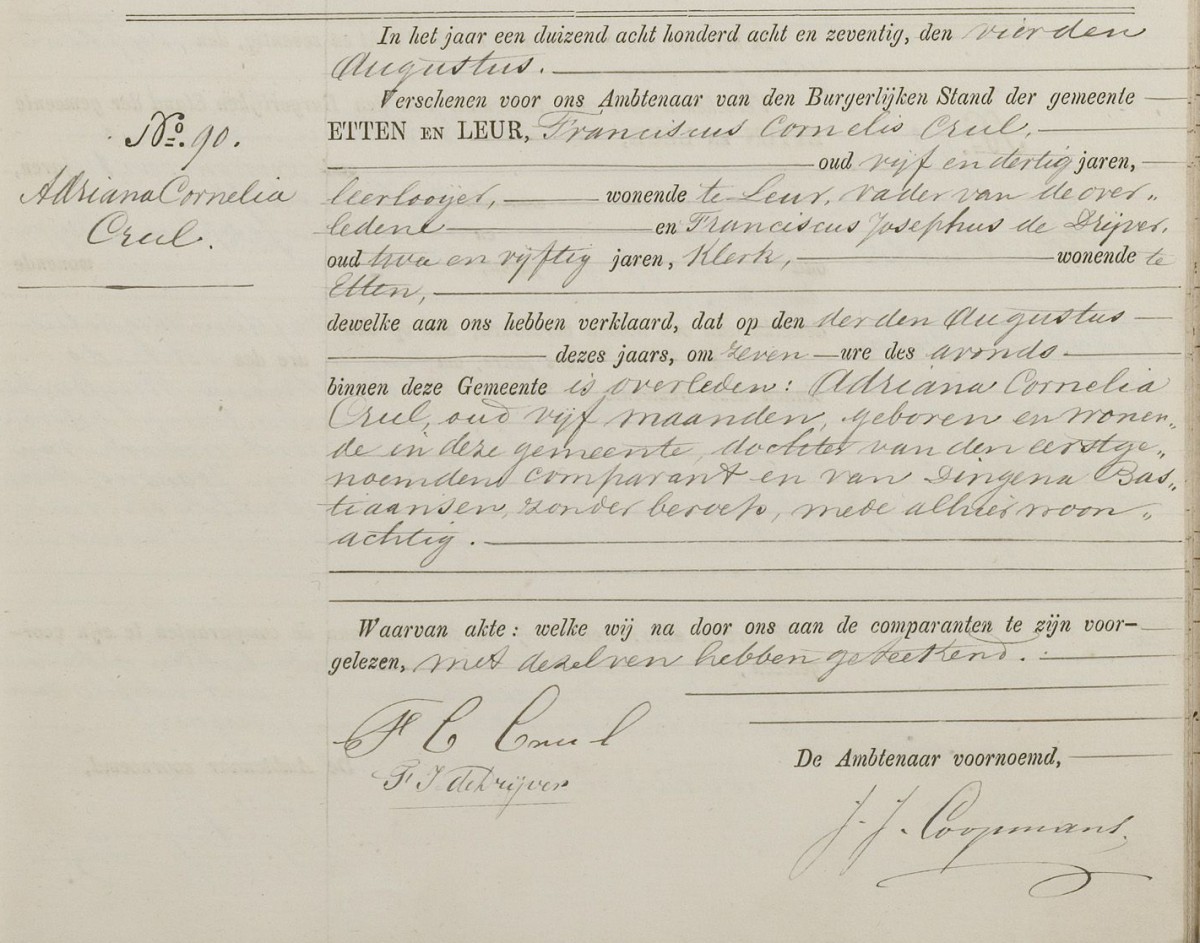 In het jaar een duizend acht honderd acht en zeventig, den vierden
Augustus.
Verschenen voor ons Ambtenaar van den Burgerlijken Stand der gemeente
ETTEN EN LEUR, Franciscus Cornelis Crul,
oud vijf en dertig jaren,
leerlooijer, wonende te Leur, vader van de over„
ledene en Franciscus Josephus de Drijver,
oud twee en vijftig jaren, Klerk, wonende te
Etten,
dewelke aan ons hebben verklaard, dat op den derden Augustus
dezes jaars, om zeven ure des avonds
binnen deze Gemeente is overleden: Adriana Cornelia
Crul, oud vijf maanden, geboren en wonen„
de in deze gemeente, dochter van den eerstge„
noemden comparant en van Dingena Bas„
tiaansen, zonder beroep, mede alhier woon„
achtig.
Waarvan akte: welke wij na door ons aan de comparanten te zijn voor-
gelezen, met dezelven hebben geteekend.
No. 90.
Adriana Cornelia
Crul.
F C Crul
F J deDrijver
De Ambtenaar voornoemd,
J. J. Coopmans.